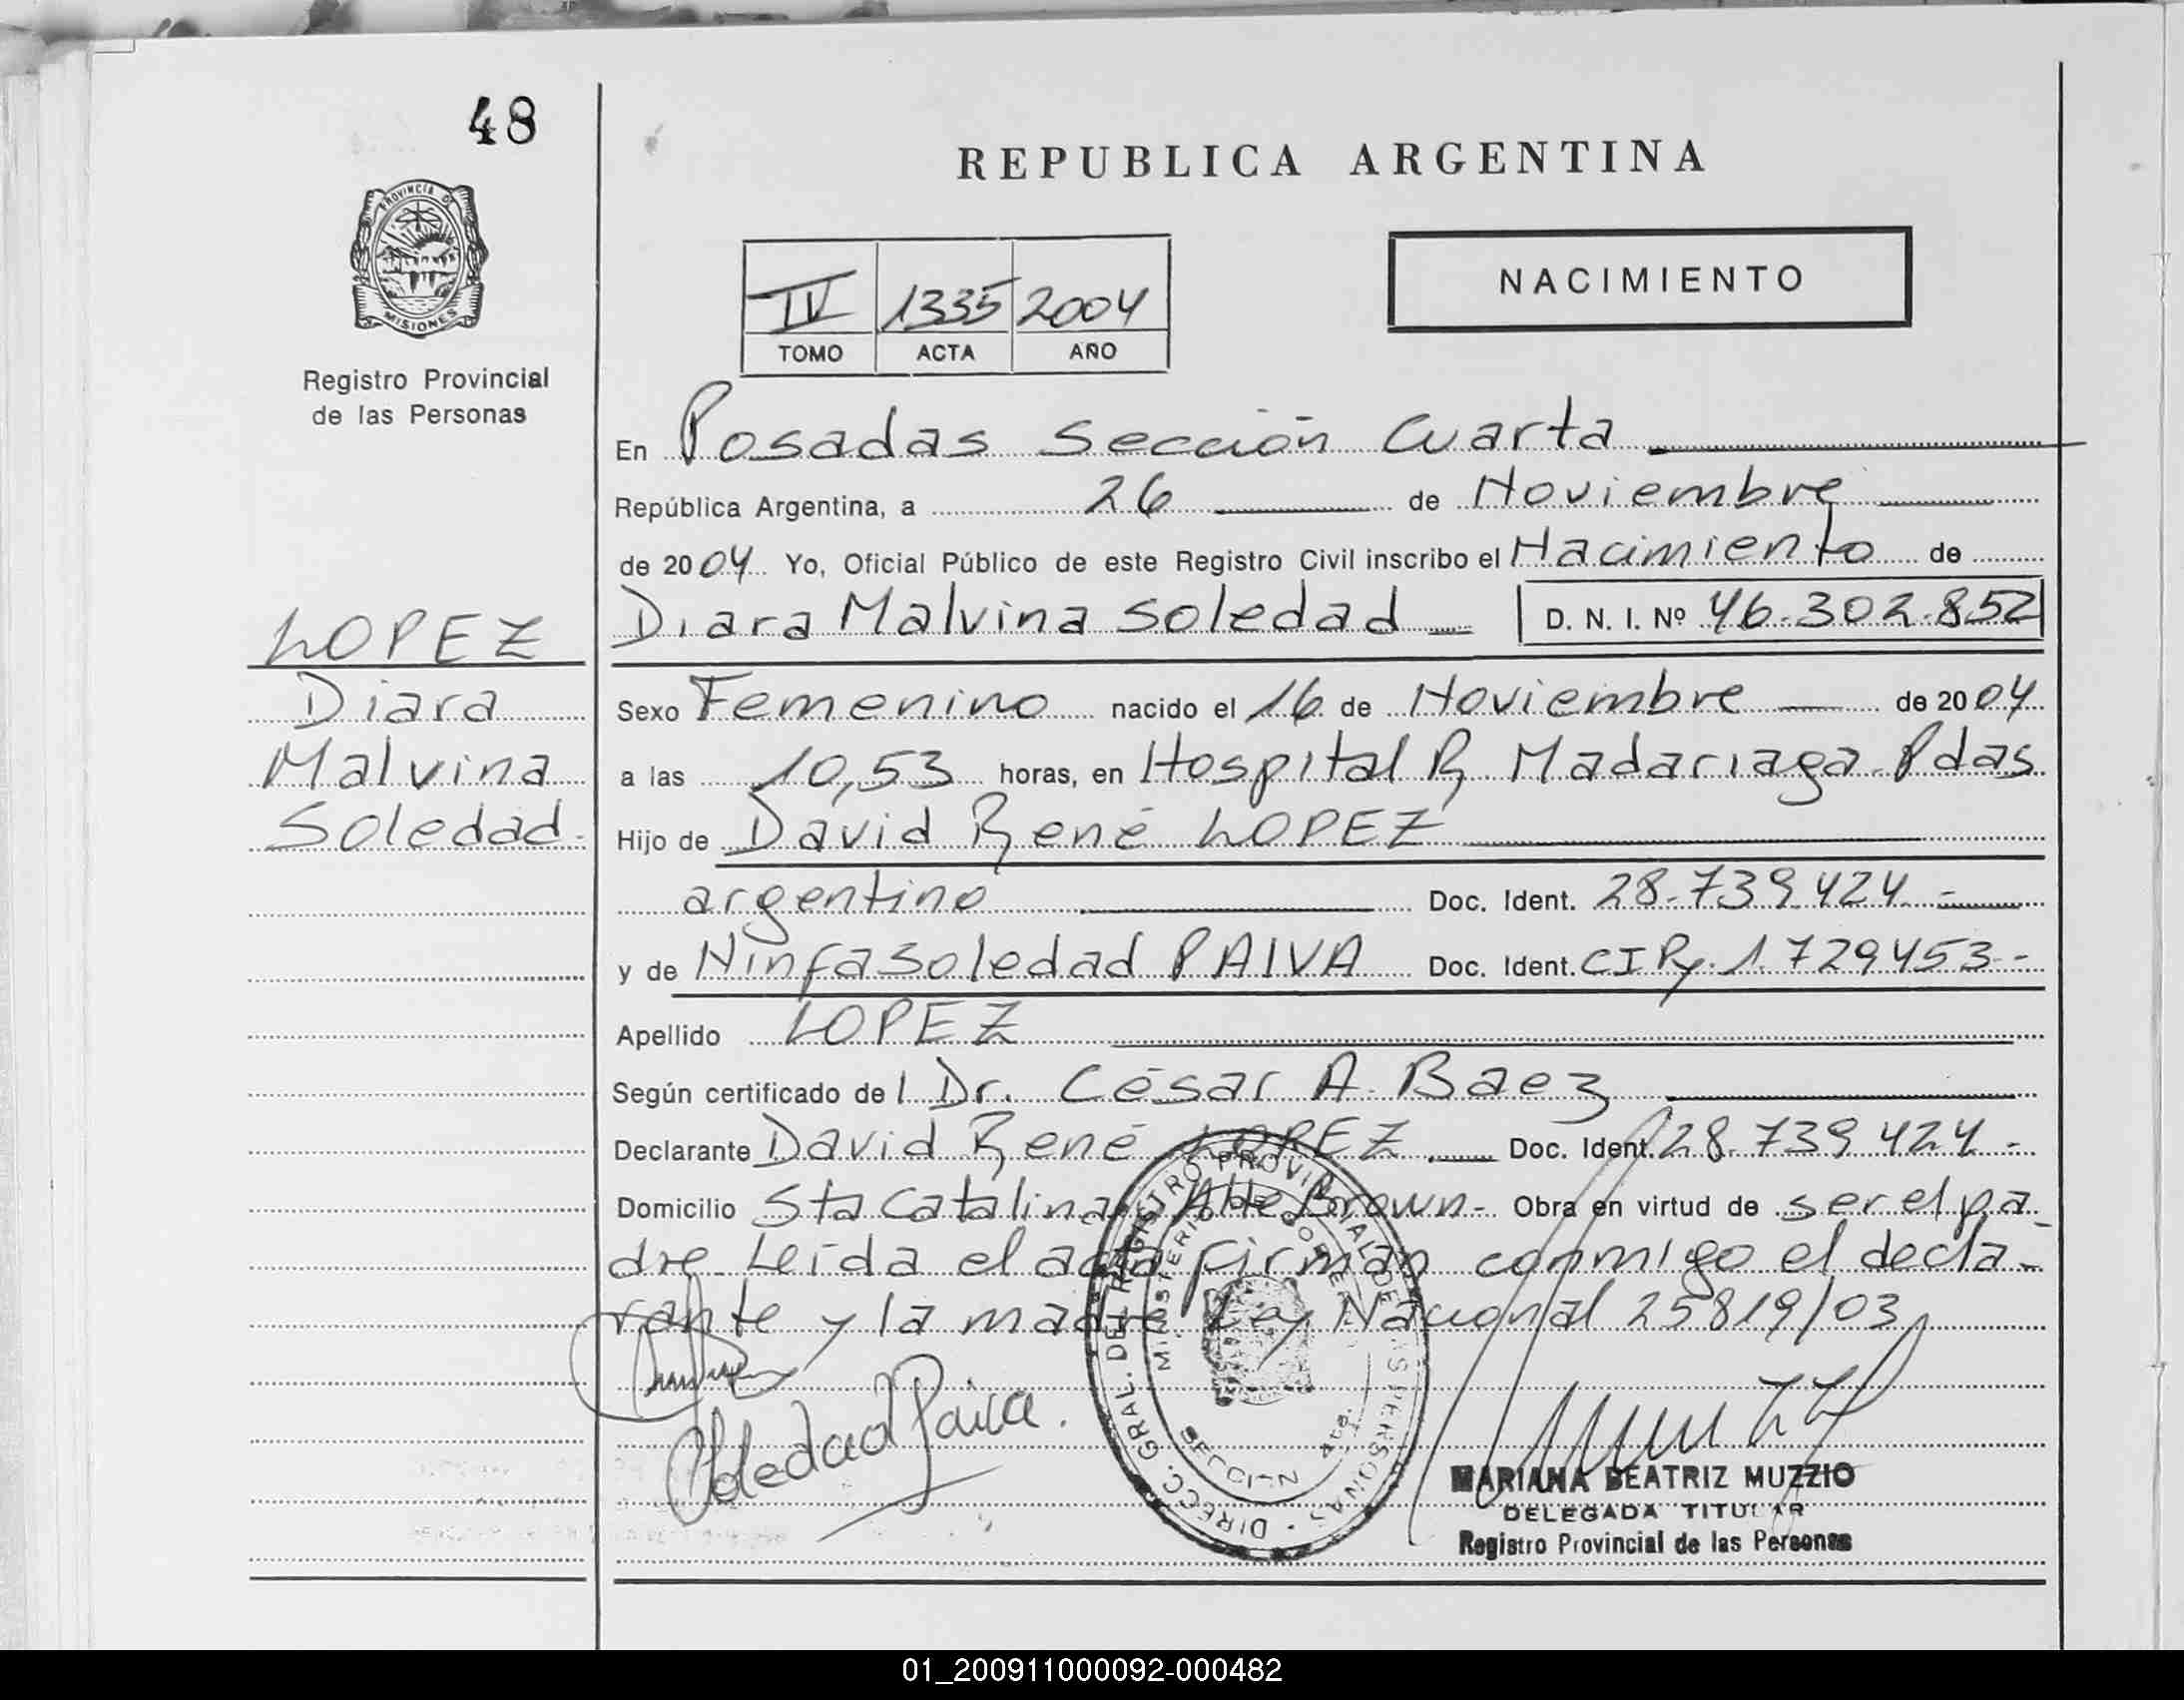 48
REPUBLICA ARGENTINA
PROVINCIA DE
MISIONES
Registro Provincial
de las Personas
NACIMIENTO
IV 1335 2004
TOMO ACTA AÑO
En Posadas Sección Cuarta
República Argentina, a 26 de Noviembre
de 2004 Yo, Oficial Público de este Registro Civil inscribo el Nacimiento de
Diara Malvina Soledad D. N. I. Nº 46.302.852
LOPEZ
Diara
Malvina
Soledad.
Sexo Femenino nacido el 16 de Noviembre de 2004
a las 10,53 horas, en Hospital R. Madariaga Pdas
Hijo de David René LOPEZ
argentino Doc. Ident. 28.739.424.-
y de Ninfa Soledad PAIVA Doc. Ident. CI Py. 1.729453.-
Apellido LOPEZ
Según certificado del Dr. César A. Baez
Declarante David René LOPEZ Doc. Ident. 28.739.424.-
Domicilio Sta Catalina y Alte Brown- Obra en virtud de ser el pa-
dre. Leída el acta firman conmigo el decla-
rante y la madre Ley Nacional 25819/03
Soledad Paiva.
DIRECC. GRAL. DEL REGISTRO PROVINCIAL DE LAS PERSONAS
MINISTERIO DE GOBIERNO
SECCION 4ta.
MARIANA BEATRIZ MUZZIO
DELEGADA TITULAR
Registro Provincial de las Personas
01_200911000092-000482